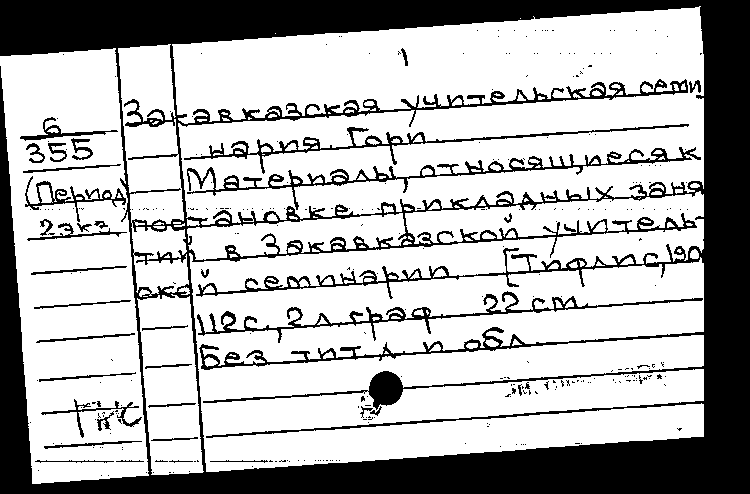 1
6
355
(Период)
2 экз.
Закавказская учительская семи
нария. Гори.
Материалы, относящиеся к
постановке прикладных заня
тий в Закавказской учитель-
ской семинарии. [Тифлис, 190
112 с., 2 л. граф. 22 см.
Без тит. л. и обл.